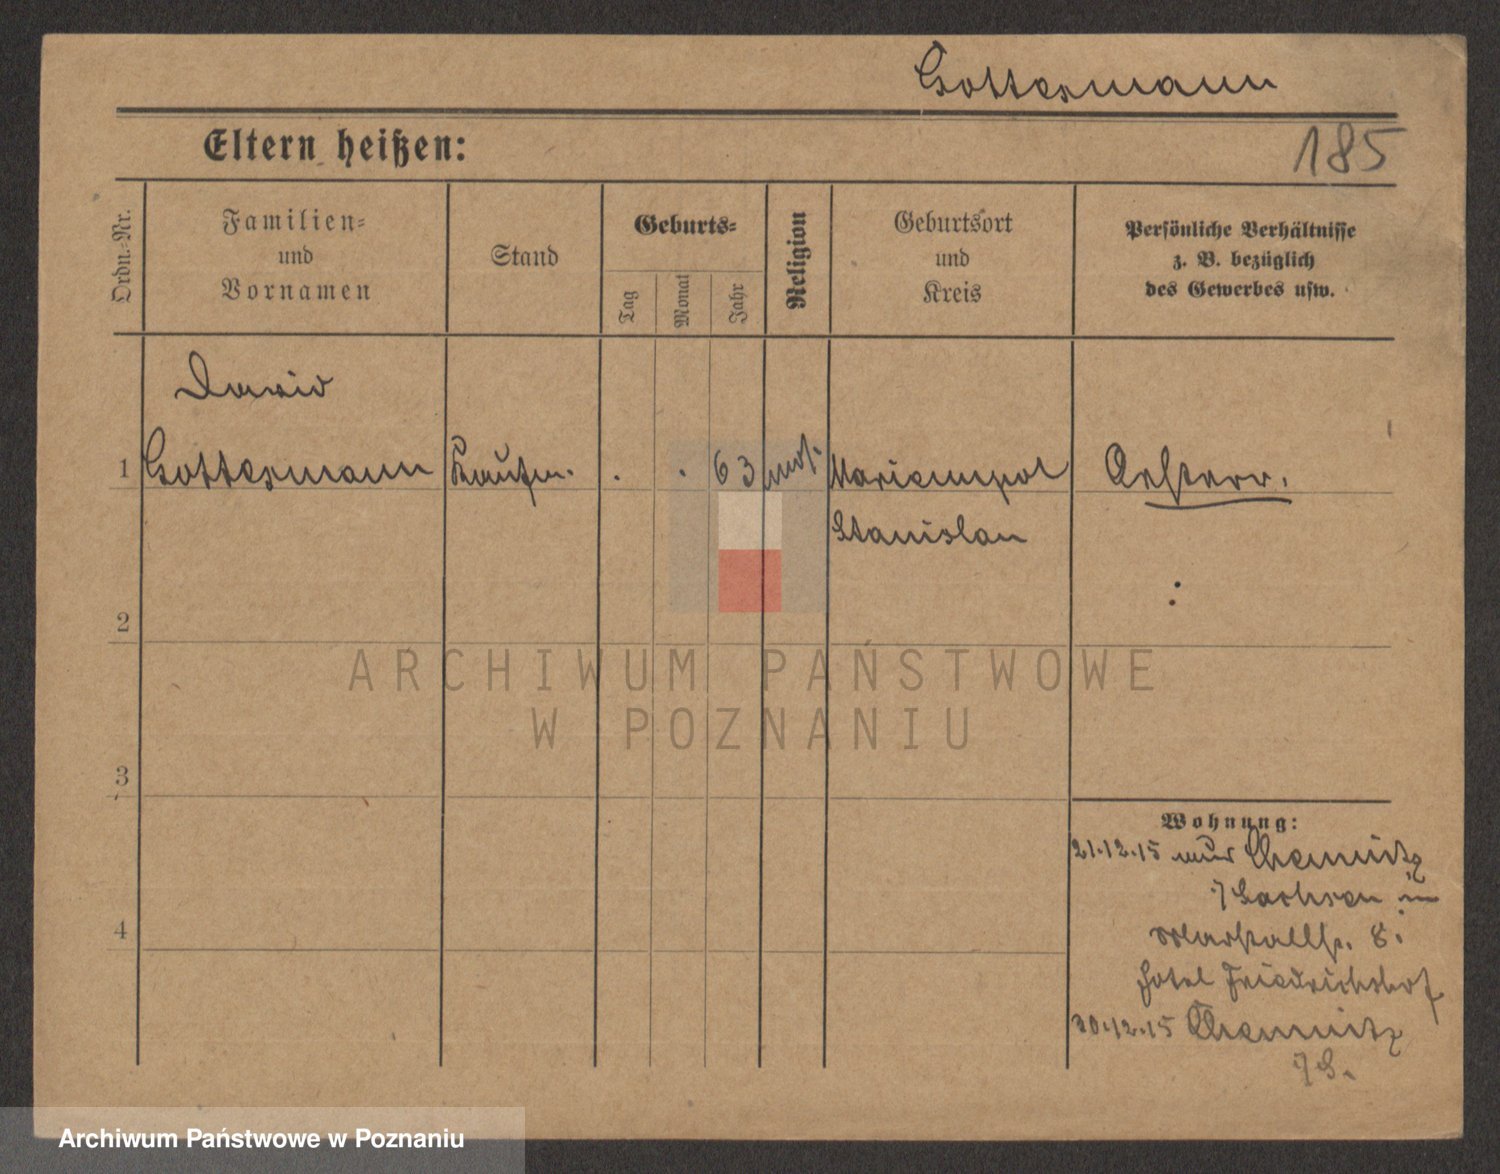 Gottesmann
Eltern heißen:
185
Ordn.-Nr.
Familien-
und
Vornamen
Stand
Geburts-
Tag
Monat
Jahr
Religion
Geburtsort
und
Kreis
Persönliche Verhältnisse
z. B. bezüglich
des Gewerbes usw.
David
1 Gottesmann Kaufm. . . 63 mos. Mariampol Oesterr.
Stanislau
2
3
4
Wohnung:
21.12.15 Chemnitz
i/Sachsen in
8.
Hotel Friedrichshof
30.12.15 Chemnitz
i/S.
ARCHIWUM PAŃSTWOWE
W POZNANIU
Archiwum Państwowe w Poznaniu